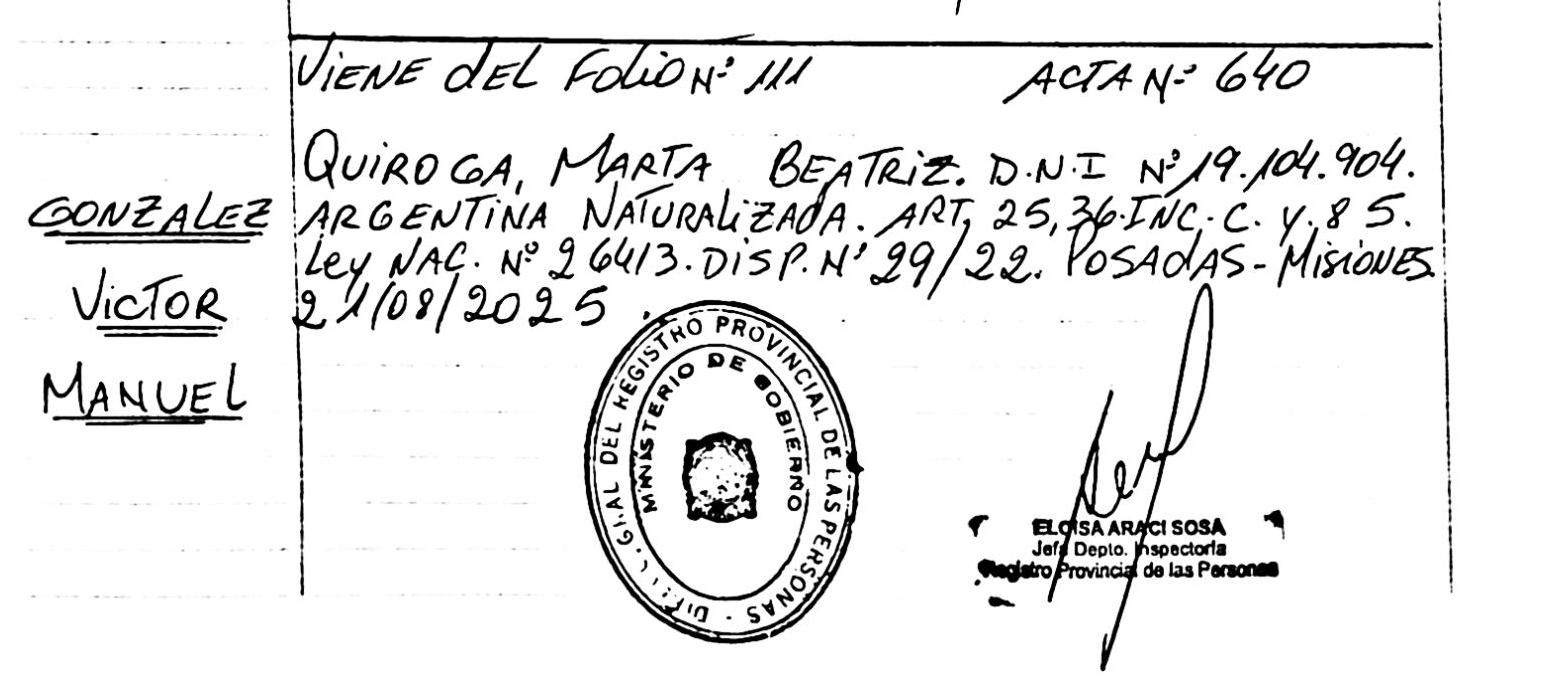 VIENE dEL FOLIO Nº 111 ACTA Nº 640
QUIROGA, MARTA BEATRIZ. D.N.I Nº 19.104.904.
ARGENTINA NATURALIZADA. ART, 25,36.INC. C. Y. 85.
Ley NAC. Nº 26413. DISP. Nº 29/22. POSADAS - MISIONES
21/08/2025.
GONZALEZ
VICTOR
MANUEL
GRAL DEL REGISTRO PROVINCIAL DE LAS PERSONAS
MINISTERIO DE GOBIERNO
ELOISA ARACI SOSA
Jefa Depto. Inspectoria
Registro Provincial de las Personas